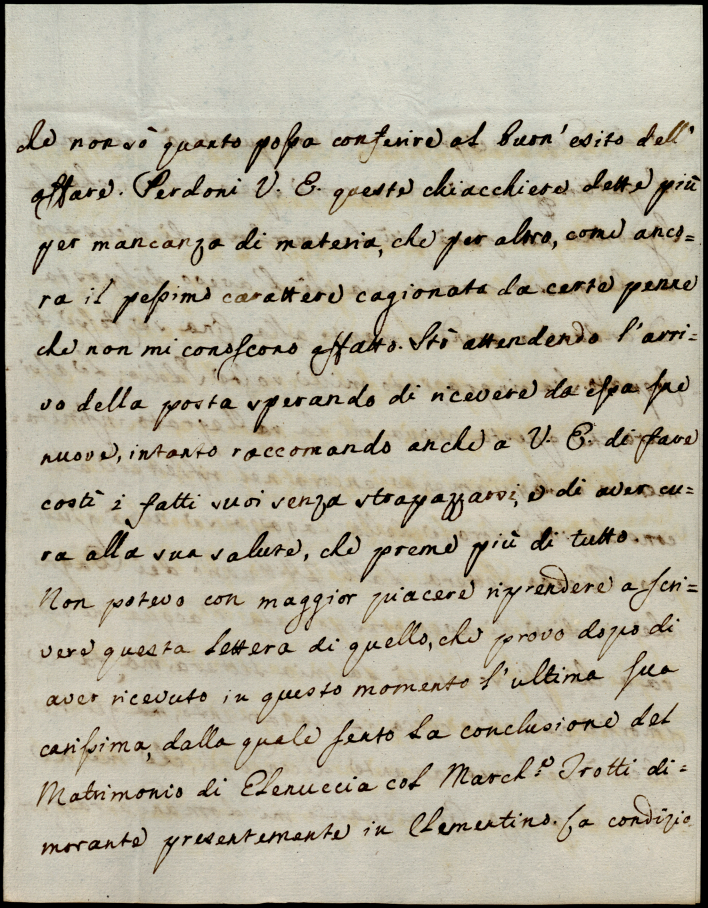 che non sò quanto possa conferire al buon' esito dell'
affare. Perdoni V. E. queste chiacchiere dette più
per mancanza di materia, che per altro, come anco=
ra il pessimo carattere cagionato da certe penne
che non mi conoscono affatto. Stò attendendo l'arri=
vo della posta sperando di ricevere da essa sue
nuove, intanto raccomando anche a V. E. di fare
costì i fatti suoi senza strapazzarsi, e di aver cu=
ra alla sua salute, che preme più di tutto.
Non potevo con maggior piacere riprendere a scri=
vere questa lettera di quello, che provo dopo di
aver ricevuto in questo momento l'ultima sua
carissima, dalla quale sento la conclusione del
Matrimonio di Elenuccia col March.e Trotti di=
morante presentemente in Clementino. La condizio